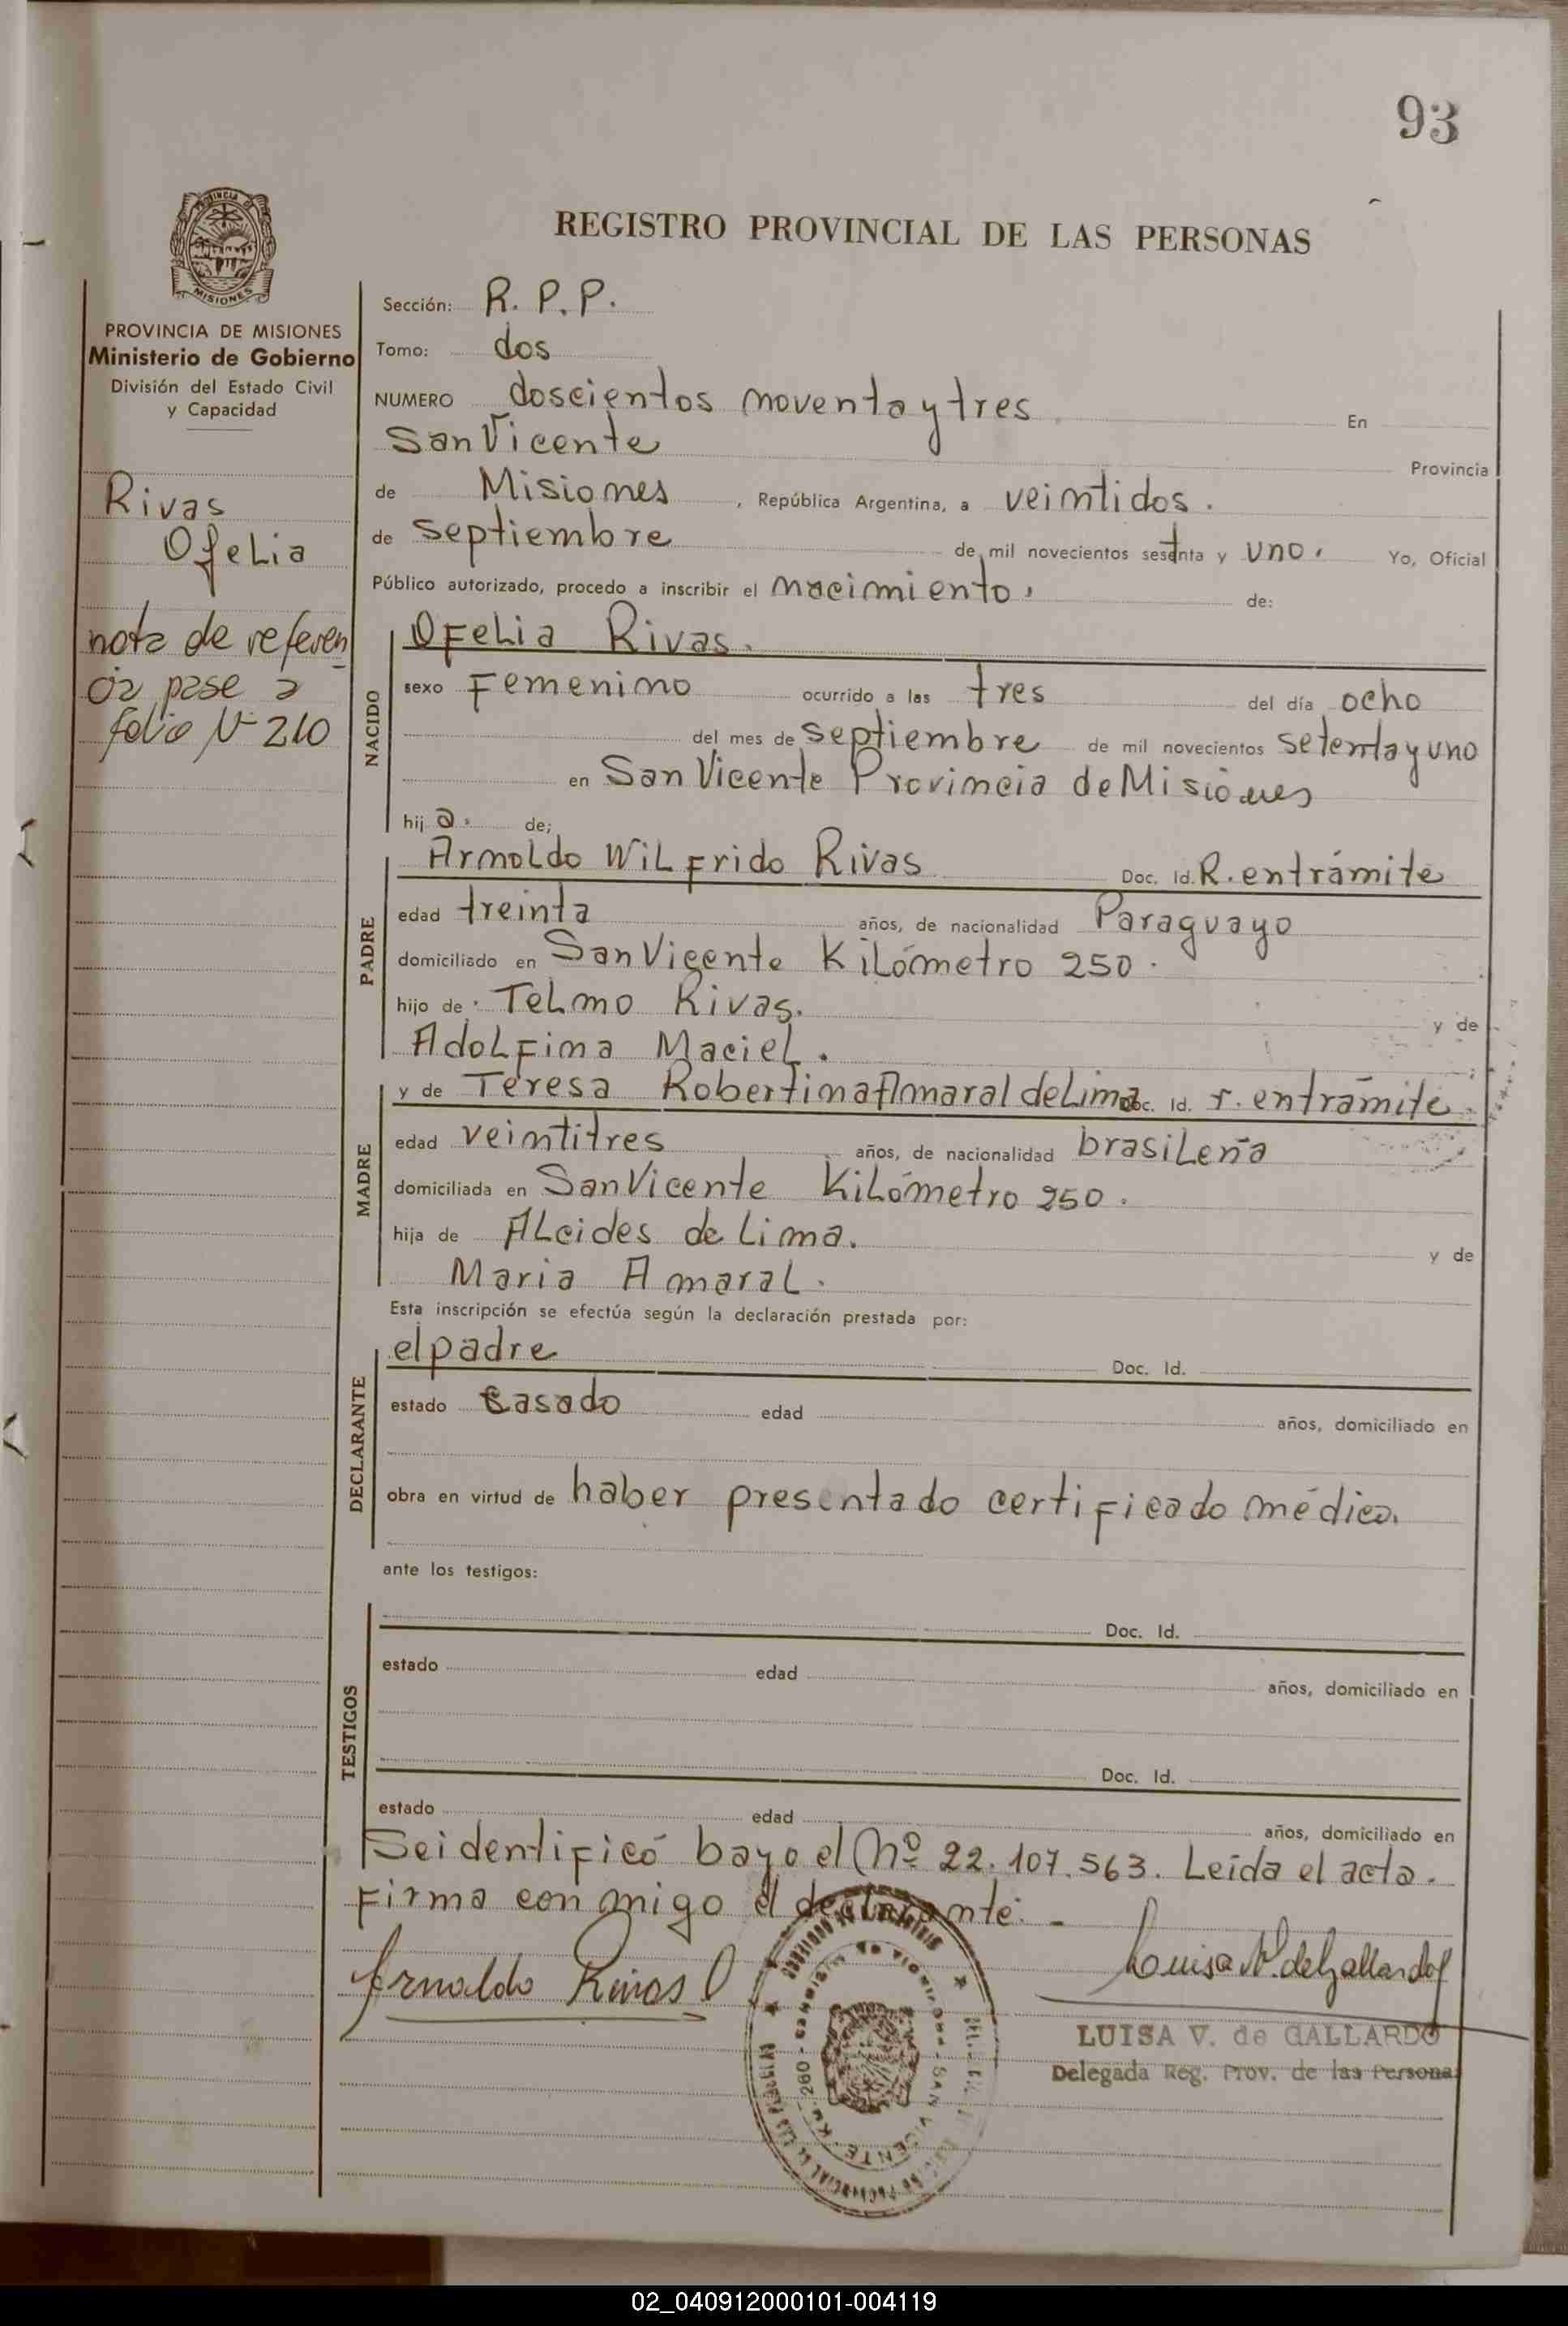 93
REGISTRO PROVINCIAL DE LAS PERSONAS
PROVINCIA DE MISIONES
Ministerio de Gobierno
División del Estado Civil
y Capacidad
Rivas
Ofelia
nota de referen
cia pase a
folio Nº 210
Sección: R. P. P.
Tomo: dos
NUMERO doscientos noventa y tres En
San Vicente Provincia
de Misiones, República Argentina, a veintidos.
de septiembre de mil novecientos setenta y uno. Yo, Oficial
Público autorizado, procedo a inscribir el nacimiento, de:
NACIDO
Ofelia Rivas.
sexo Femenino ocurrido a las tres del día ocho
del mes de septiembre de mil novecientos setenta y uno
en San Vicente Provincia de Misiones
hij a. de;
PADRE
Arnoldo Wilfrido Rivas Doc. Id. R. entrámite
edad treinta años, de nacionalidad Paraguayo
domiciliado en San Vicente Kilómetro 250.
hijo de Telmo Rivas. y de
Adolfina Maciel.
MADRE
y de Teresa Robertina Amaral de Lima Doc. Id. r. entrámite.
edad veintitres años, de nacionalidad brasileña
domiciliada en San Vicente Kilómetro 250.
hija de Alcides de Lima. y de
Maria Amaral.
Esta inscripción se efectúa según la declaración prestada por:
DECLARANTE
el padre Doc. Id.
estado casado edad años, domiciliado en
obra en virtud de haber presentado certificado médico.
ante los testigos:
TESTIGOS
Doc. Id.
estado edad años, domiciliado en
Doc. Id.
estado edad años, domiciliado en
Se identificó bayo el Nº 22.107.563. Leída el acta.
Firma con migo el declarante.-
Arnoldo Rivas
Luisa V. de Gallardo
LUISA V. de GALLARDO
Delegada Reg. Prov. de las Personas
SAN VICENTE
02_040912000101-004119